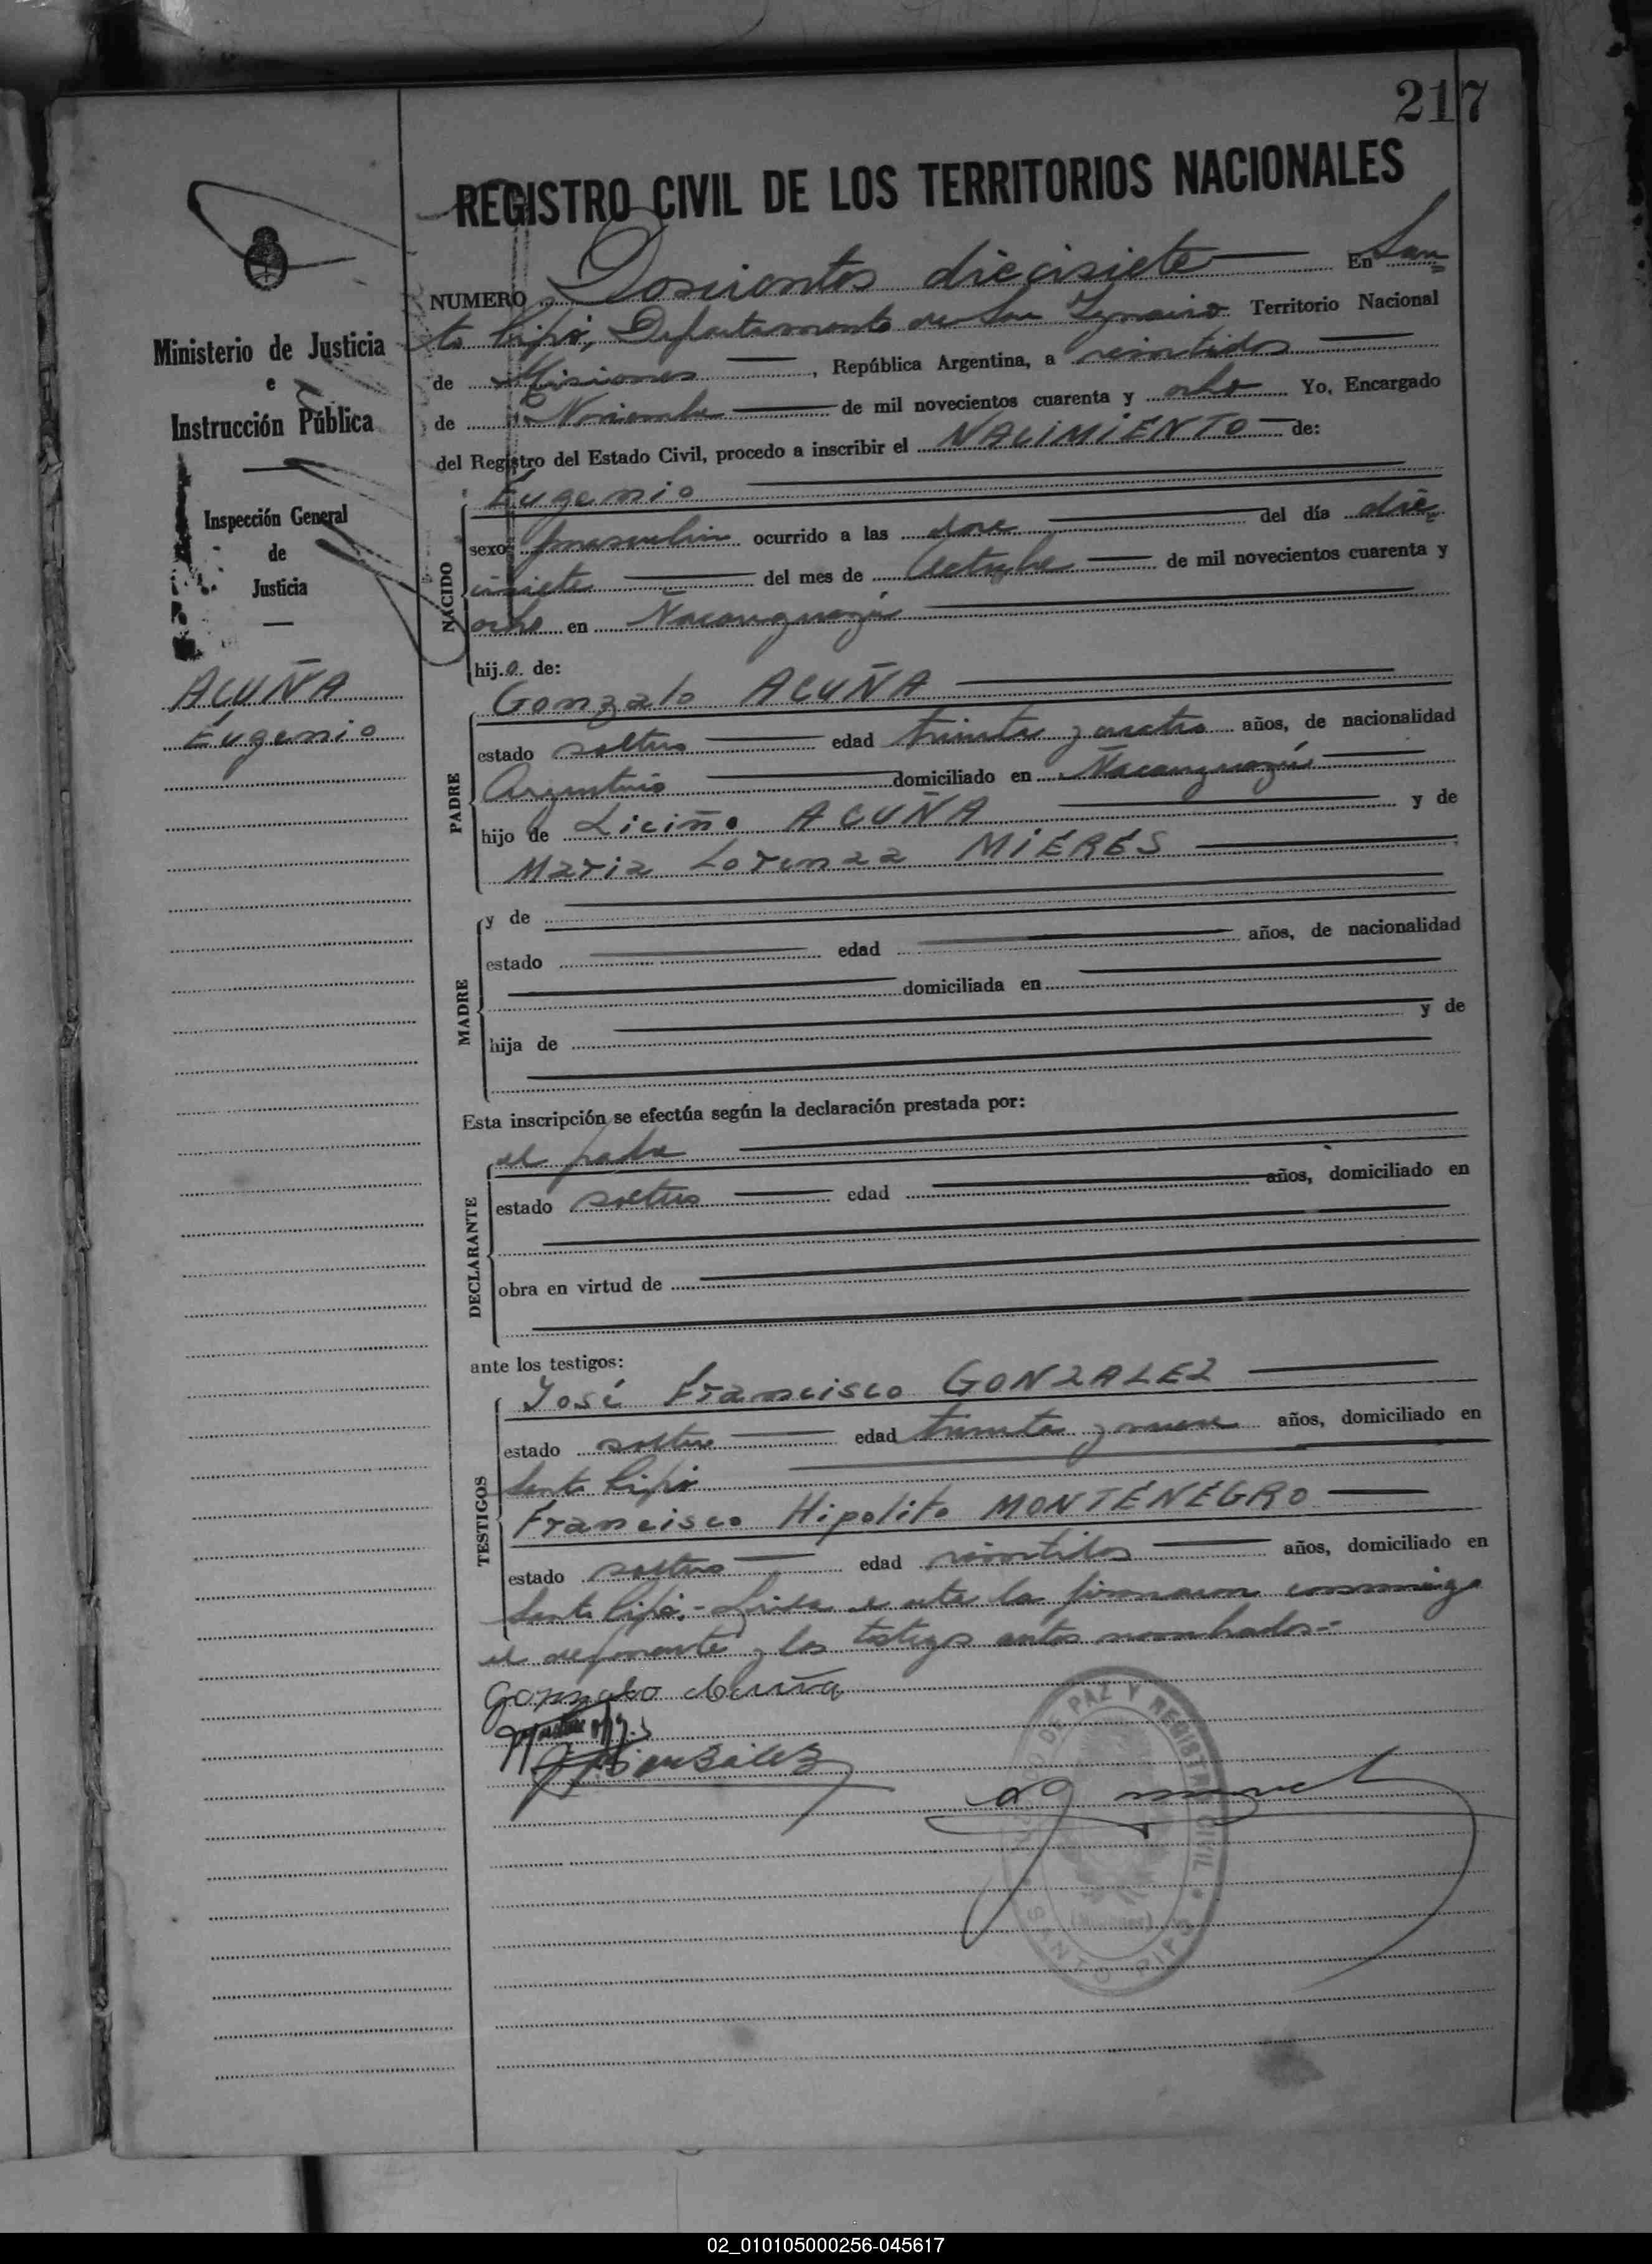 217
REGISTRO CIVIL DE LOS TERRITORIOS NACIONALES
NUMERO Doscientos diecisiete En San
to Pipó, Departamento de San Ignacio Territorio Nacional
de Misiones, República Argentina, a veintidos
de Noviembre de mil novecientos cuarenta y ocho Yo, Encargado
del Registro del Estado Civil, procedo a inscribir el NACIMIENTO de:
Ministerio de Justicia
e
Instrucción Pública
Inspección General
de
Justicia
ACUÑA
Eugenio
NACIDO
Eugenio
sexo masculino ocurrido a las doce del día die
cisiete del mes de Octubre de mil novecientos cuarenta y
ocho en Ñacanguazú
hijo de:
PADRE
Gonzalo ACUÑA
estado soltero edad treinta y cuatro años, de nacionalidad
Argentino domiciliado en Ñacanguazú
hijo de Liciño ACUÑA y de
Maria Lorenza MIERES
MADRE
y de
estado edad años, de nacionalidad
domiciliada en
hija de y de
Esta inscripción se efectúa según la declaración prestada por:
DECLARANTE
el padre
estado soltero edad años, domiciliado en
obra en virtud de
ante los testigos:
TESTIGOS
José Francisco GONZALEZ
estado soltero edad treinta y nueve años, domiciliado en
Santo Pipó
Francisco Hipolito MONTENEGRO
estado soltero edad años, domiciliado en
Santo Pipó.- Leida el acta la firmaron conmigo
el deponente y los testigos antes nombrados.-
Gonzalo Acuña
González
DE PAZ Y REGISTRO CIVIL
SANTO PIPÓ
(Misiones)
02_010105000256-045617